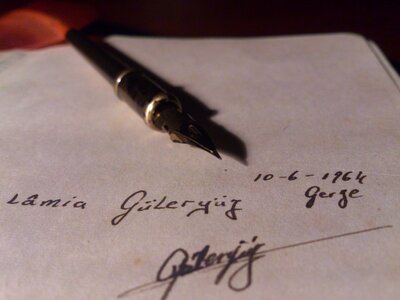 10-6-1964
Lâmia Güleryüz Gerze
Güleryüz